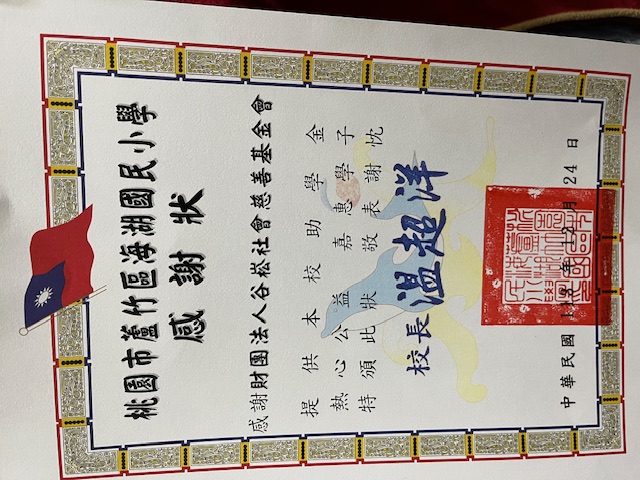 桃園市蘆竹區海湖國民小學
感謝狀
感謝財團法人谷崧社會慈善基金會
提供本校助學金
熱心公益嘉惠學子
特頒此狀敬表謝忱
校長溫超洋
中華民國 年 12 月 24 日